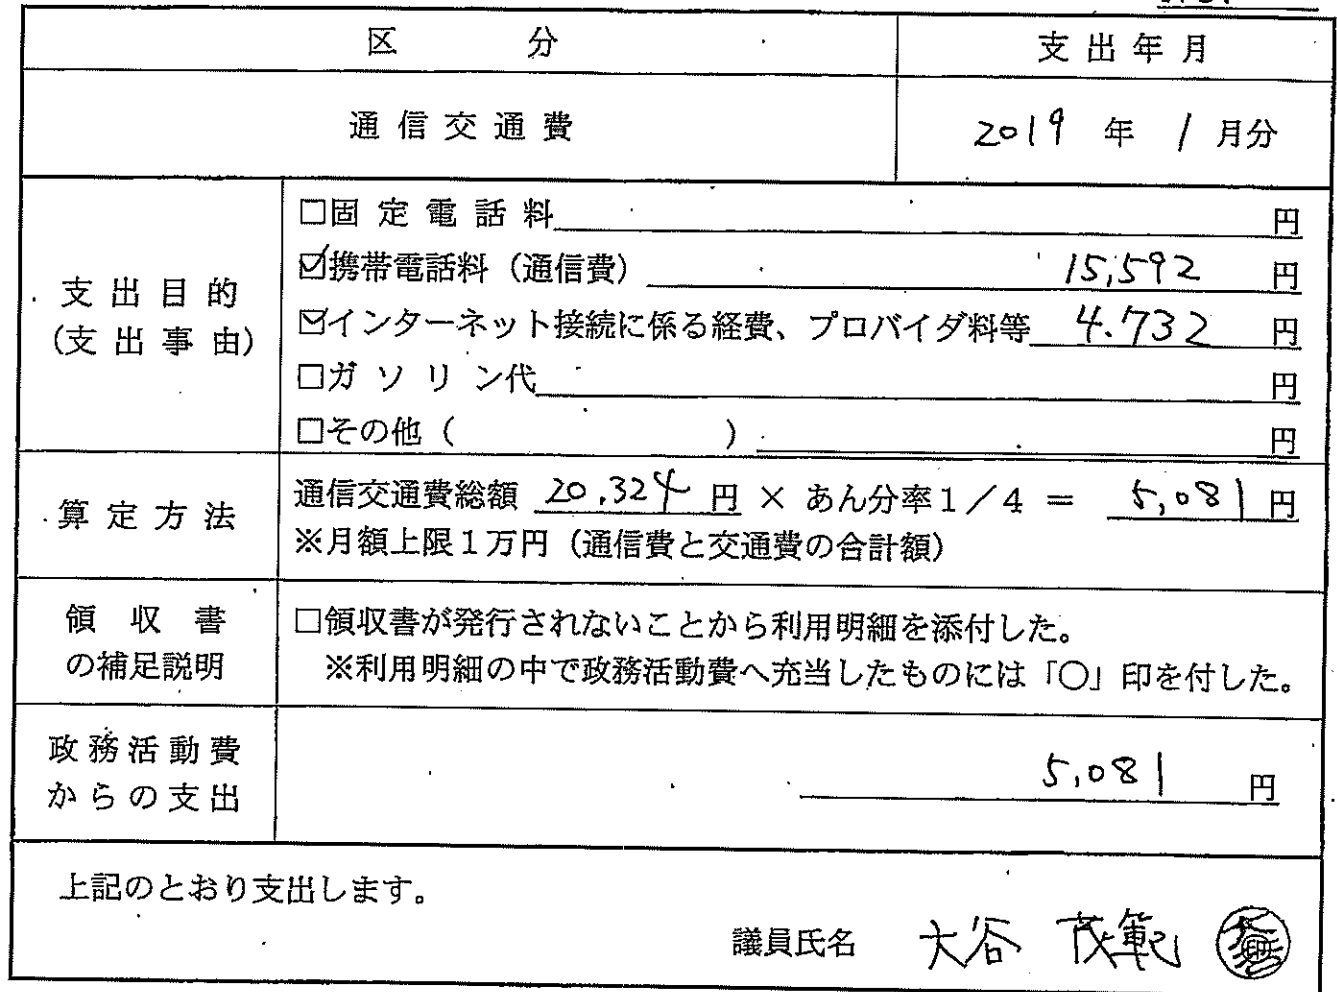 区分 支出年月
通信交通費 2019 年 1 月分
支出目的
(支出事由)
□固定電話料 円
☑携帯電話料（通信費） 15,592 円
☑インターネット接続に係る経費、プロバイダ料等 4.732 円
□ガソリン代 円
□その他（ ） 円
算定方法
通信交通費総額 20.324 円 × あん分率1／4 ＝ 5,081 円
※月額上限1万円（通信費と交通費の合計額）
領収書
の補足説明
□領収書が発行されないことから利用明細を添付した。
※利用明細の中で政務活動費へ充当したものには「〇」印を付した。
政務活動費
からの支出
5,081 円
上記のとおり支出します。
議員氏名 大谷 茂範